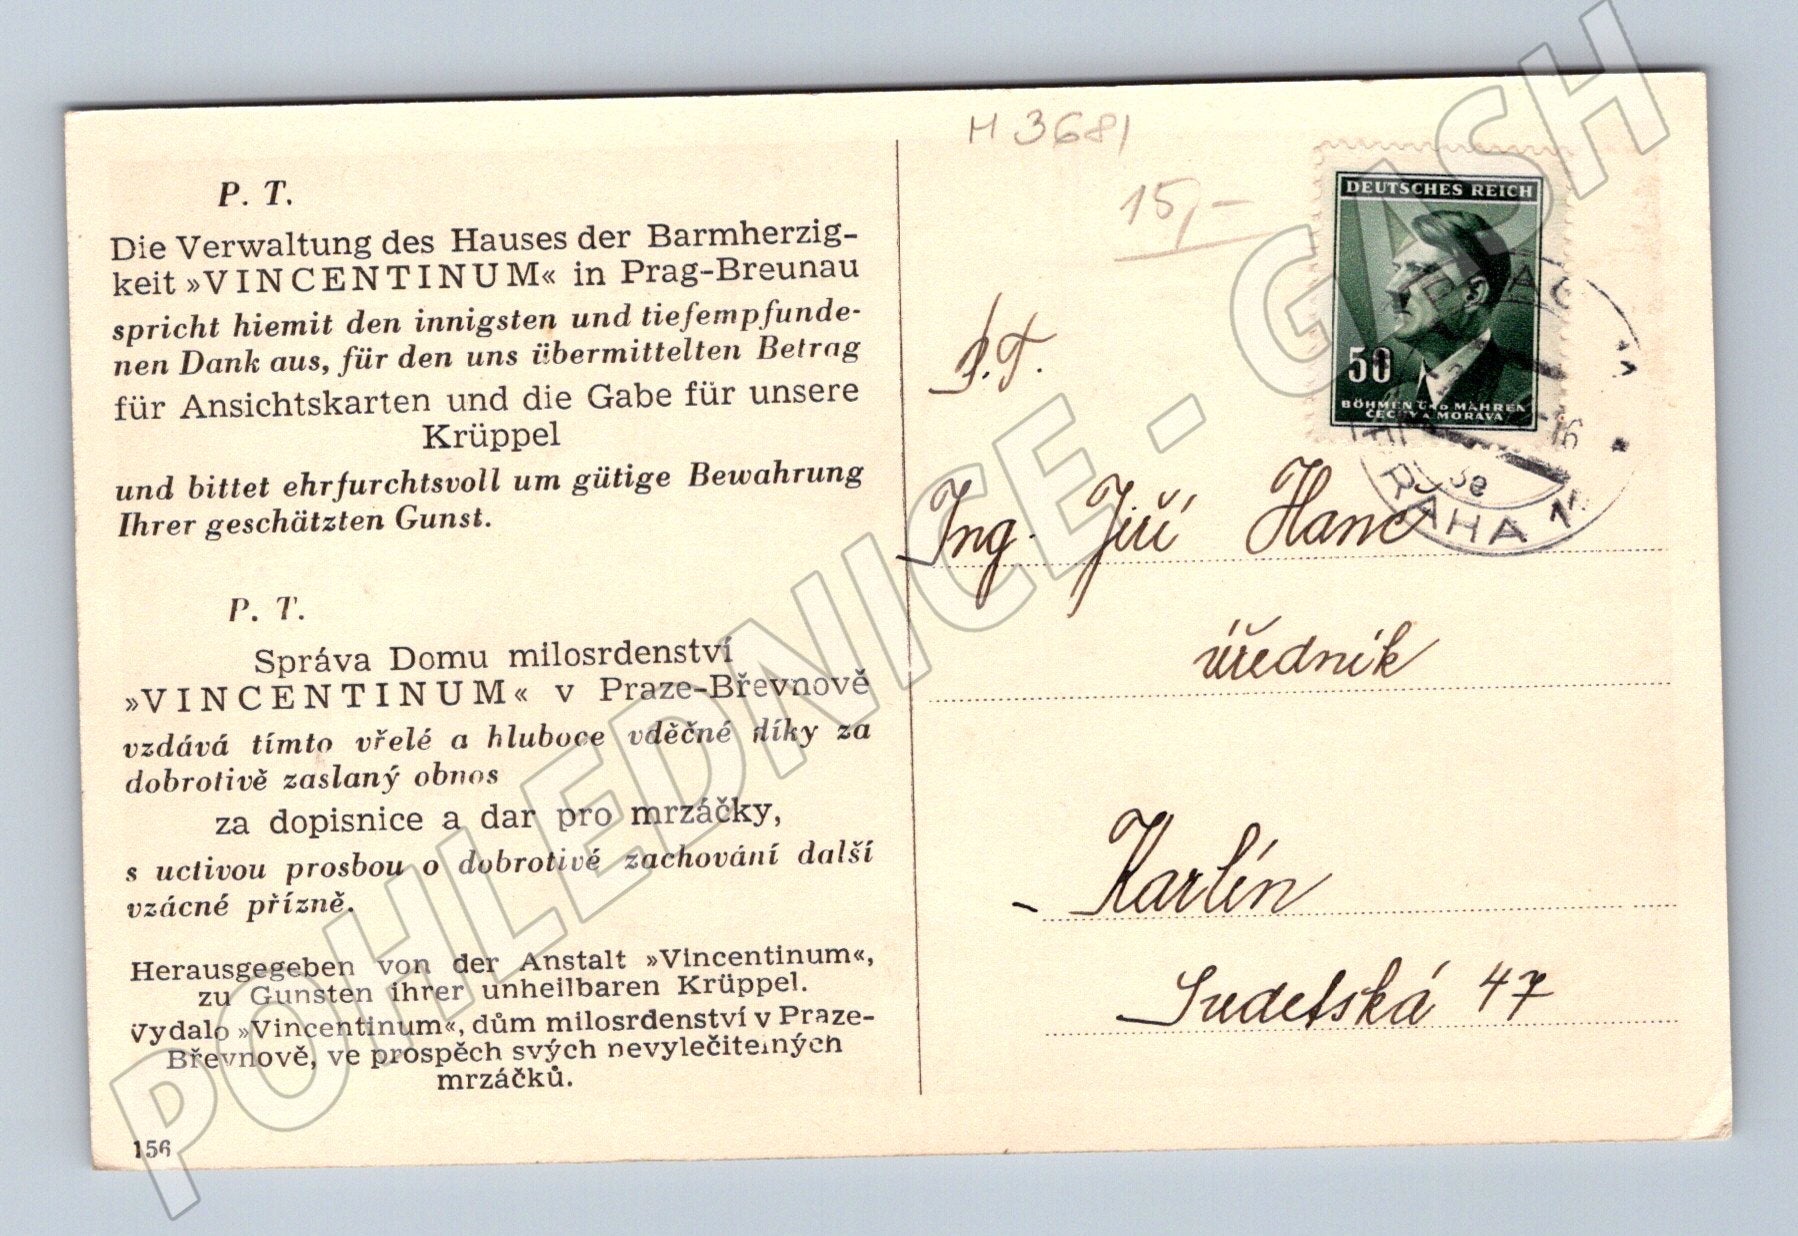 P. T.
Die Verwaltung des Hauses der Barmherzig-
keit »VINCENTINUM« in Prag-Breunau
spricht hiemit den innigsten und tiefempfunde-
nen Dank aus, für den uns übermittelten Betrag
für Ansichtskarten und die Gabe für unsere
Krüppel
und bittet ehrfurchtsvoll um gütige Bewahrung
Ihrer geschätzten Gunst.
P. T.
Správa Domu milosrdenství
»VINCENTINUM« v Praze-Břevnově
vzdává tímto vřelé a hluboce vděčné díky za
dobrotivě zaslaný obnos
za dopisnice a dar pro mrzáčky,
s uctivou prosbou o dobrotivé zachování další
vzácné přízně.
Herausgegeben von der Anstalt »Vincentinum«,
zu Gunsten ihrer unheilbaren Krüppel.
Vydalo »Vincentinum«, dům milosrdenství v Praze-
Břevnově, ve prospěch svých nevylečitelných
mrzáčků.
156
H 3681
15,-
DEUTSCHES REICH
50
BÖHMEN UND MÄHREN
ČECHY A MORAVA
PRAG
PRAHA
P.T.
Ing. Jiří Hanc
úředník
Karlín
Sudetská 47
POHLEDNICE - GASH